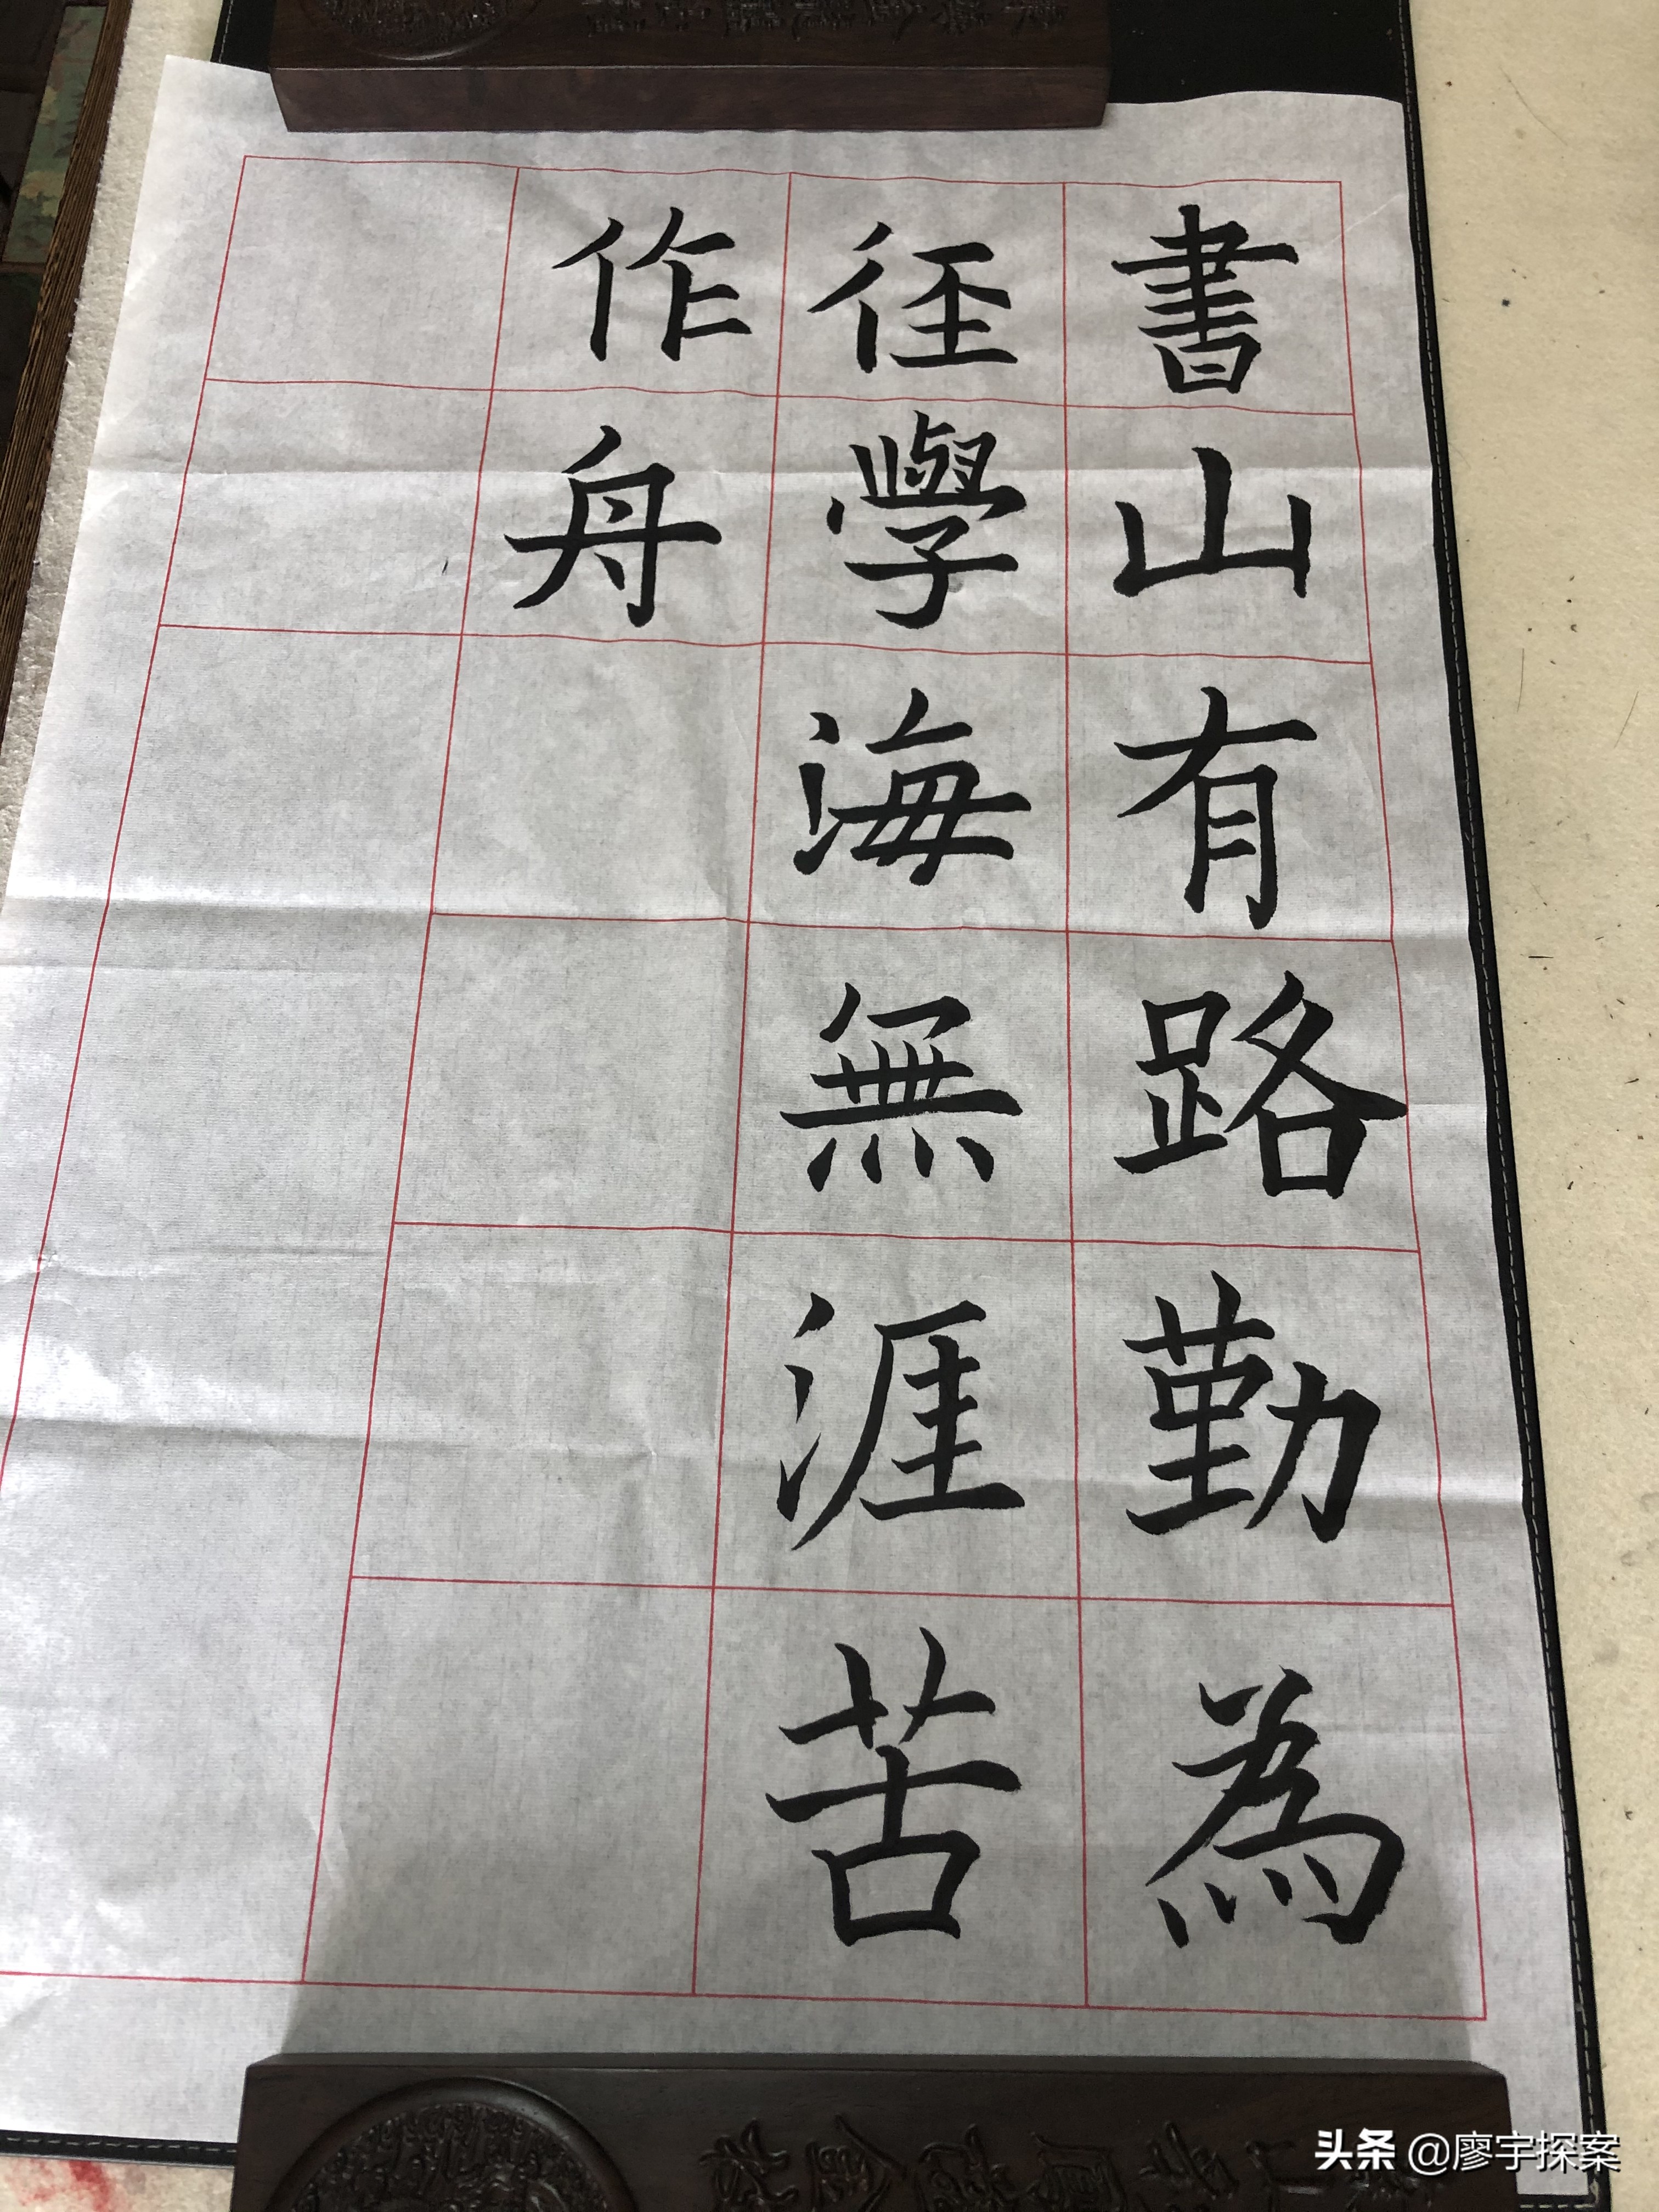 書山有路勤為
徑學海無涯苦
作舟
头条 @廖宇探案